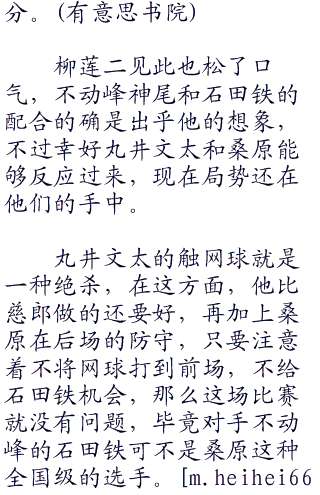 分。(有意思书院)
柳莲二见此也松了口
气，不动峰神尾和石田铁的
配合的确是出乎他的想象，
不过幸好丸井文太和桑原能
够反应过来，现在局势还在
他们的手中。
丸井文太的触网球就是
一种绝杀，在这方面，他比
慈郎做的还要好，再加上桑
原在后场的防守，只要注意
着不将网球打到前场，不给
石田铁机会，那么这场比赛
就没有问题，毕竟对手不动
峰的石田铁可不是桑原这种
全国级的选手。[m.heihei66